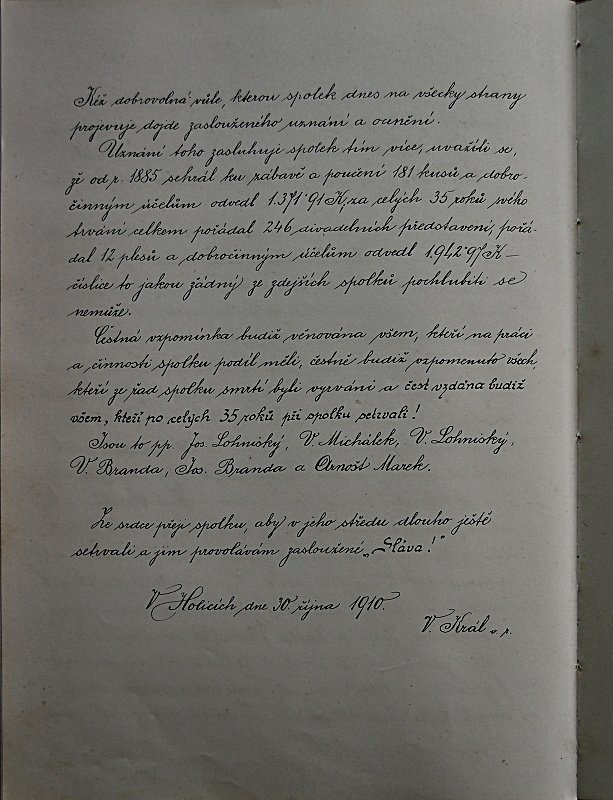 Kéž dobrovolná vůle, kterou spolek dnes na všecky strany
projevuje dojde zaslouženého uznání a ocenění.
Uznání toho zasluhuje spolek tím více, uvážíli se,
že od r. 1885 sehrál ku zábavě a poučení 181 kusů a dobro-
činným účelům odvedl 1.371·91 K, za celých 35 roků svého
trvání celkem pořádal 246 divadelních představení, pořá-
dal 12 plesů a dobročinným účelům odvedl 1.942·97 K –
číslice to jakou žádný ze zdejších spolků pochlubiti se
nemůže.
Čestná vzpomínka budiž věnována všem, kteří na práci
a činnosti spolku podíl měli, čestně budiž vzpomenuto všech,
kteří ze řad spolku smrtí byli vyrváni a čest vzdána budiž
všem, kteří po celých 35 roků při spolku setrvali!
Jsou to pp. Jos. Lohniský, V. Michálek, V. Lohniský,
V. Branda, Jos. Branda a Arnošt Marek.
Ze srdce přeji spolku, aby v jeho středu dlouho ještě
setrvali a jim provolávám zasloužené „Sláva!"
V Holicích dne 30. října 1910.
V. Král v. r.